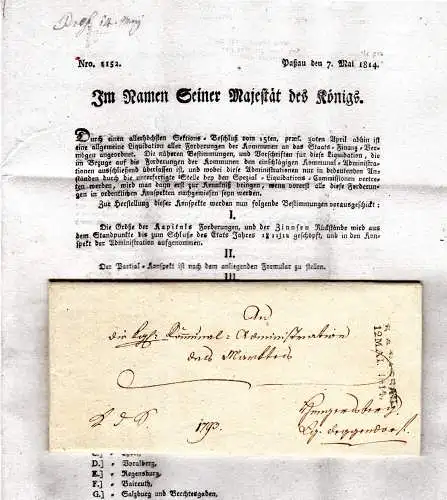 Nro. 3152.
Paßau den 7. Mai 1814.
Im Namen Seiner Majestät des Königs.
Durch einen allerhöchsten Sektions-Beschluß vom 15ten, præs. 20ten April abhin ist
eine allgemeine Liquidation aller Forderungen der Kommunen an das Staats-Finanz-Ver-
mögen angeordnet. Die näheren Bestimmungen, und Vorschriften für diese Liquidation, die
im Bezuge auf die Forderungen der Kommunen den einschlägigen Kommunal-Administra-
tionen ausschließend überlassen ist, und wobei diese Administrationen nur in bedeutenden Um-
ständen durch die unterfertigte Stelle bey den Spezial-Liquidations-Commissionen vertre-
ten werden, wird man dann erst zur Kenntniß bringen, wenn vorerst alle diese Forderun-
gen in ordentlichen Konspekten nachgewiesen seyn werden.
Zur Herstellung dieser Konspekte werden nun folgende Bestimmungen vorausgeschickt:
I.
Die Größe der Kapitals Forderungen, und der Zinnsen Rückstände wird aus
dem Standpunkte bis zum Schluße des Etats Jahres 18 11/12 geschöpft, und in den Kon-
spekt der Administration aufgenommen.
II.
Der Partial-Konspekt ist nach dem anliegenden Formular zu stellen.
III
An
die kgl: Kommunal-Administration
des Marktes
12 MAI. 1814.
Hengersberg
Lg. Deggendorf.
R d S. 1793.
D.] " Voralberg,
E.] " Regensburg,
F.] " Baireuth,
G.] " Salzburg und Berchtesgaden,